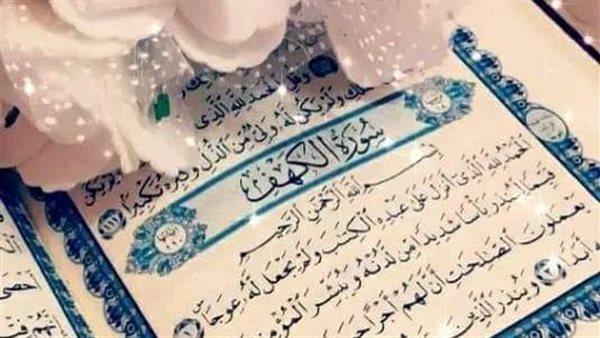 وَقُلِ ٱلْحَمْدُ لِلَّهِ ٱلَّذِى
وَلَمْ يَكُن لَّهُۥ وَلِىٌّ مِّنَ ٱلذُّلِّ وَكَبِّرْهُ تَكْبِيرًۢا ١١١
سُورَةُ الْكَهْفِ
بِسْمِ ٱللَّهِ ٱلرَّحْمَٰنِ ٱلرَّحِيمِ
ٱلْحَمْدُ لِلَّهِ ٱلَّذِىٓ أَنزَلَ عَلَىٰ عَبْدِهِ ٱلْكِتَٰبَ وَلَمْ يَجْعَل لَّهُۥ عِوَجَاۜ ١
قَيِّمًا لِّيُنذِرَ بَأْسًا شَدِيدًا مِّن لَّدُنْهُ وَيُبَشِّرَ
يَعْمَلُونَ ٱلصَّٰلِحَٰتِ أَنَّ لَهُمْ أَجْرًا
أَبَدًا ٣ وَيُنذِرَ ٱلَّذِينَ